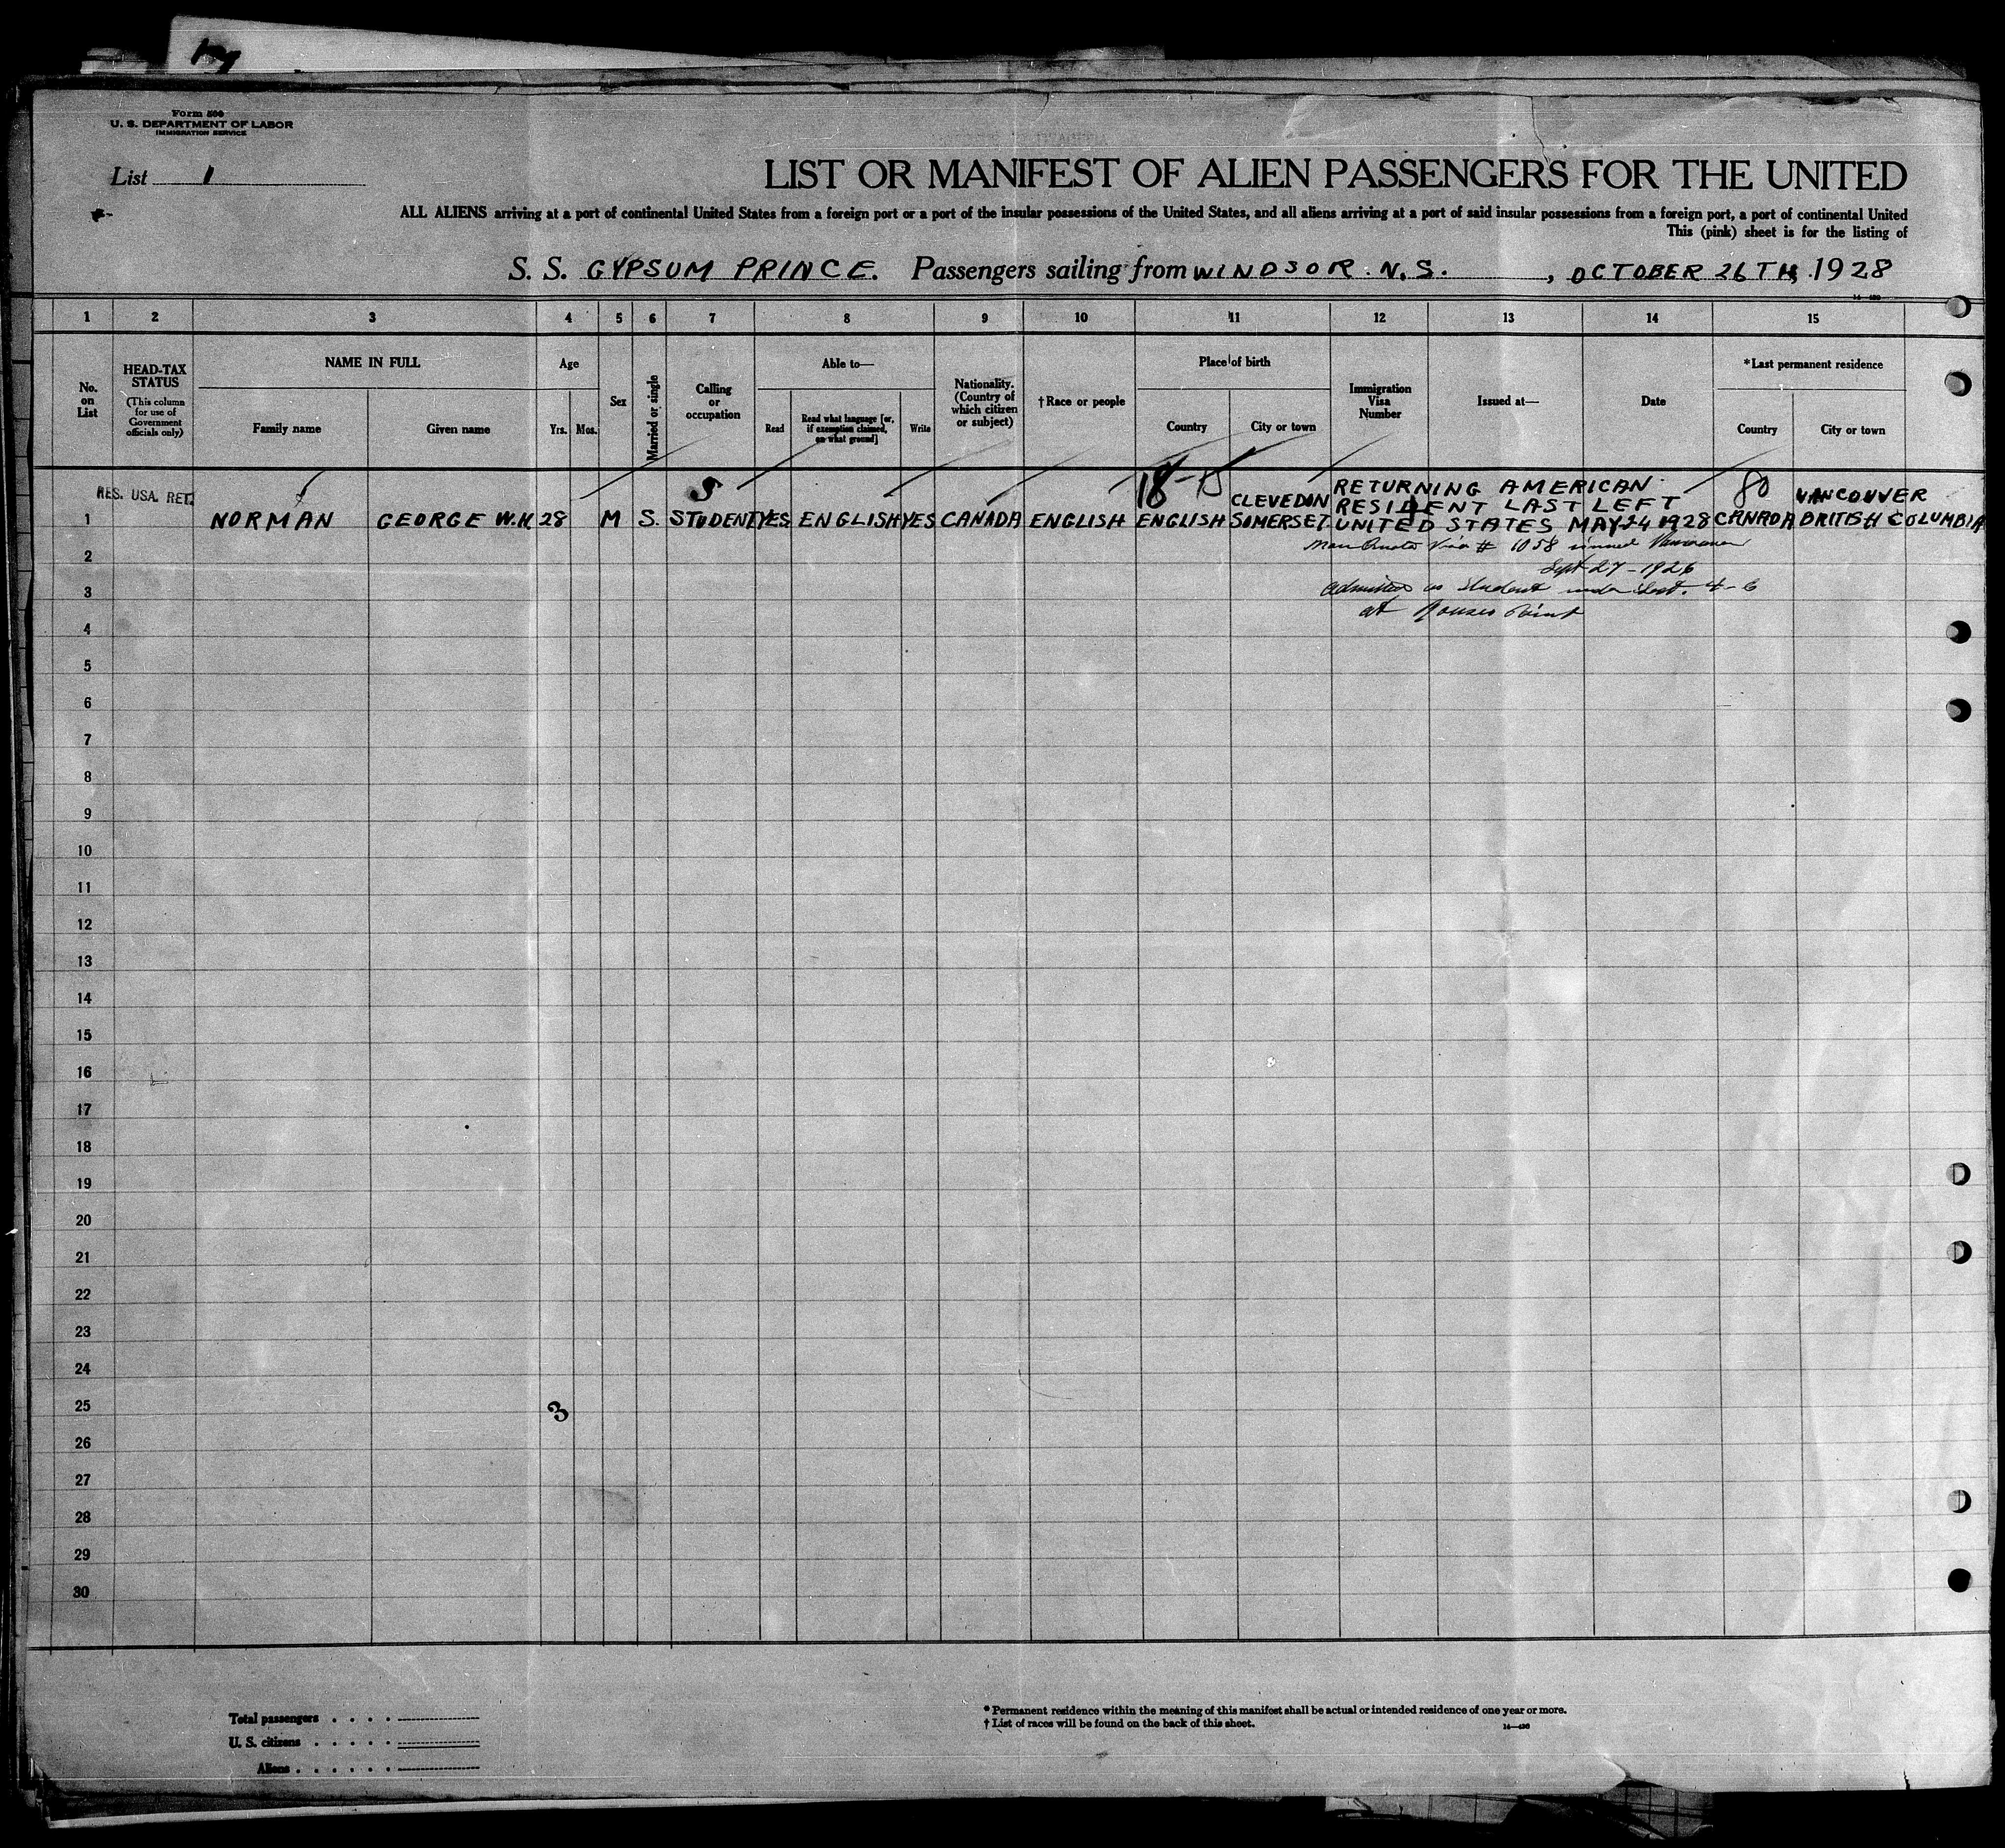 Form 500
U. S. DEPARTMENT OF LABOR
IMMIGRATION SERVICE
List 1
LIST OR MANIFEST OF ALIEN PASSENGERS FOR THE UNITED
ALL ALIENS arriving at a port of continental United States from a foreign port or a port of the insular possessions of the United States, and all aliens arriving at a port of said insular possessions from a foreign port, a port of continental United
This (pink) sheet is for the listing of
S. S. GYPSUM PRINCE. Passengers sailing from WINDSOR. N.S. , OCTOBER 26TH, 1928
1 2 3 4 5 6 7 8 9 10 11 12 13 14 15
No. on List
HEAD-TAX STATUS
(This column for use of Government officials only)
NAME IN FULL
Family name
Given name
Age
Yrs.
Mos.
Sex
Married or single
Calling or occupation
Able to—
Read
Read what language [or, if exemption claimed, on what ground]
Write
Nationality. (Country of which citizen or subject)
† Race or people
Place of birth
Country
City or town
Immigration Visa Number
Issued at—
Date
* Last permanent residence
Country
City or town
RES. USA. RET.
S
18-15
CLEVEDON
RETURNING AMERICAN
RESIDENT LAST LEFT
80
VANCOUVER
1 NORMAN GEORGE W.H. 28 M S. STUDENT YES ENGLISH YES CANADA ENGLISH ENGLISH SOMERSET UNITED STATES MAY 24 1928 CANADA BRITISH COLUMBIA
2
Non Quota Visa # 1058 issued Vancouver
Sept 27-1926
3
admitted as Student under Sect. 4-6
at Rouses Point
4
5
6
7
8
9
10
11
12
13
14
15
16
17
18
19
20
21
22
23
24
25 3
26
27
28
29
30
Total passengers
U. S. citizens
Aliens
* Permanent residence within the meaning of this manifest shall be actual or intended residence of one year or more.
† List of races will be found on the back of this sheet.